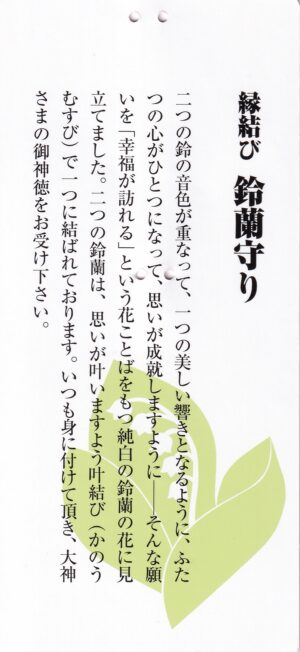 縁結び 鈴蘭守り
二つの鈴の音色が重なって、一つの美しい響きとなるように、ふた
つの心がひとつになって、思いが成就しますように──そんな願
いを「幸福が訪れる」という花ことばをもつ純白の鈴蘭の花に見
立てました。二つの鈴蘭は、思いが叶いますよう叶結び（かのう
むすび）で一つに結ばれております。いつも身に付けて頂き、大神
さまの御神徳をお受け下さい。